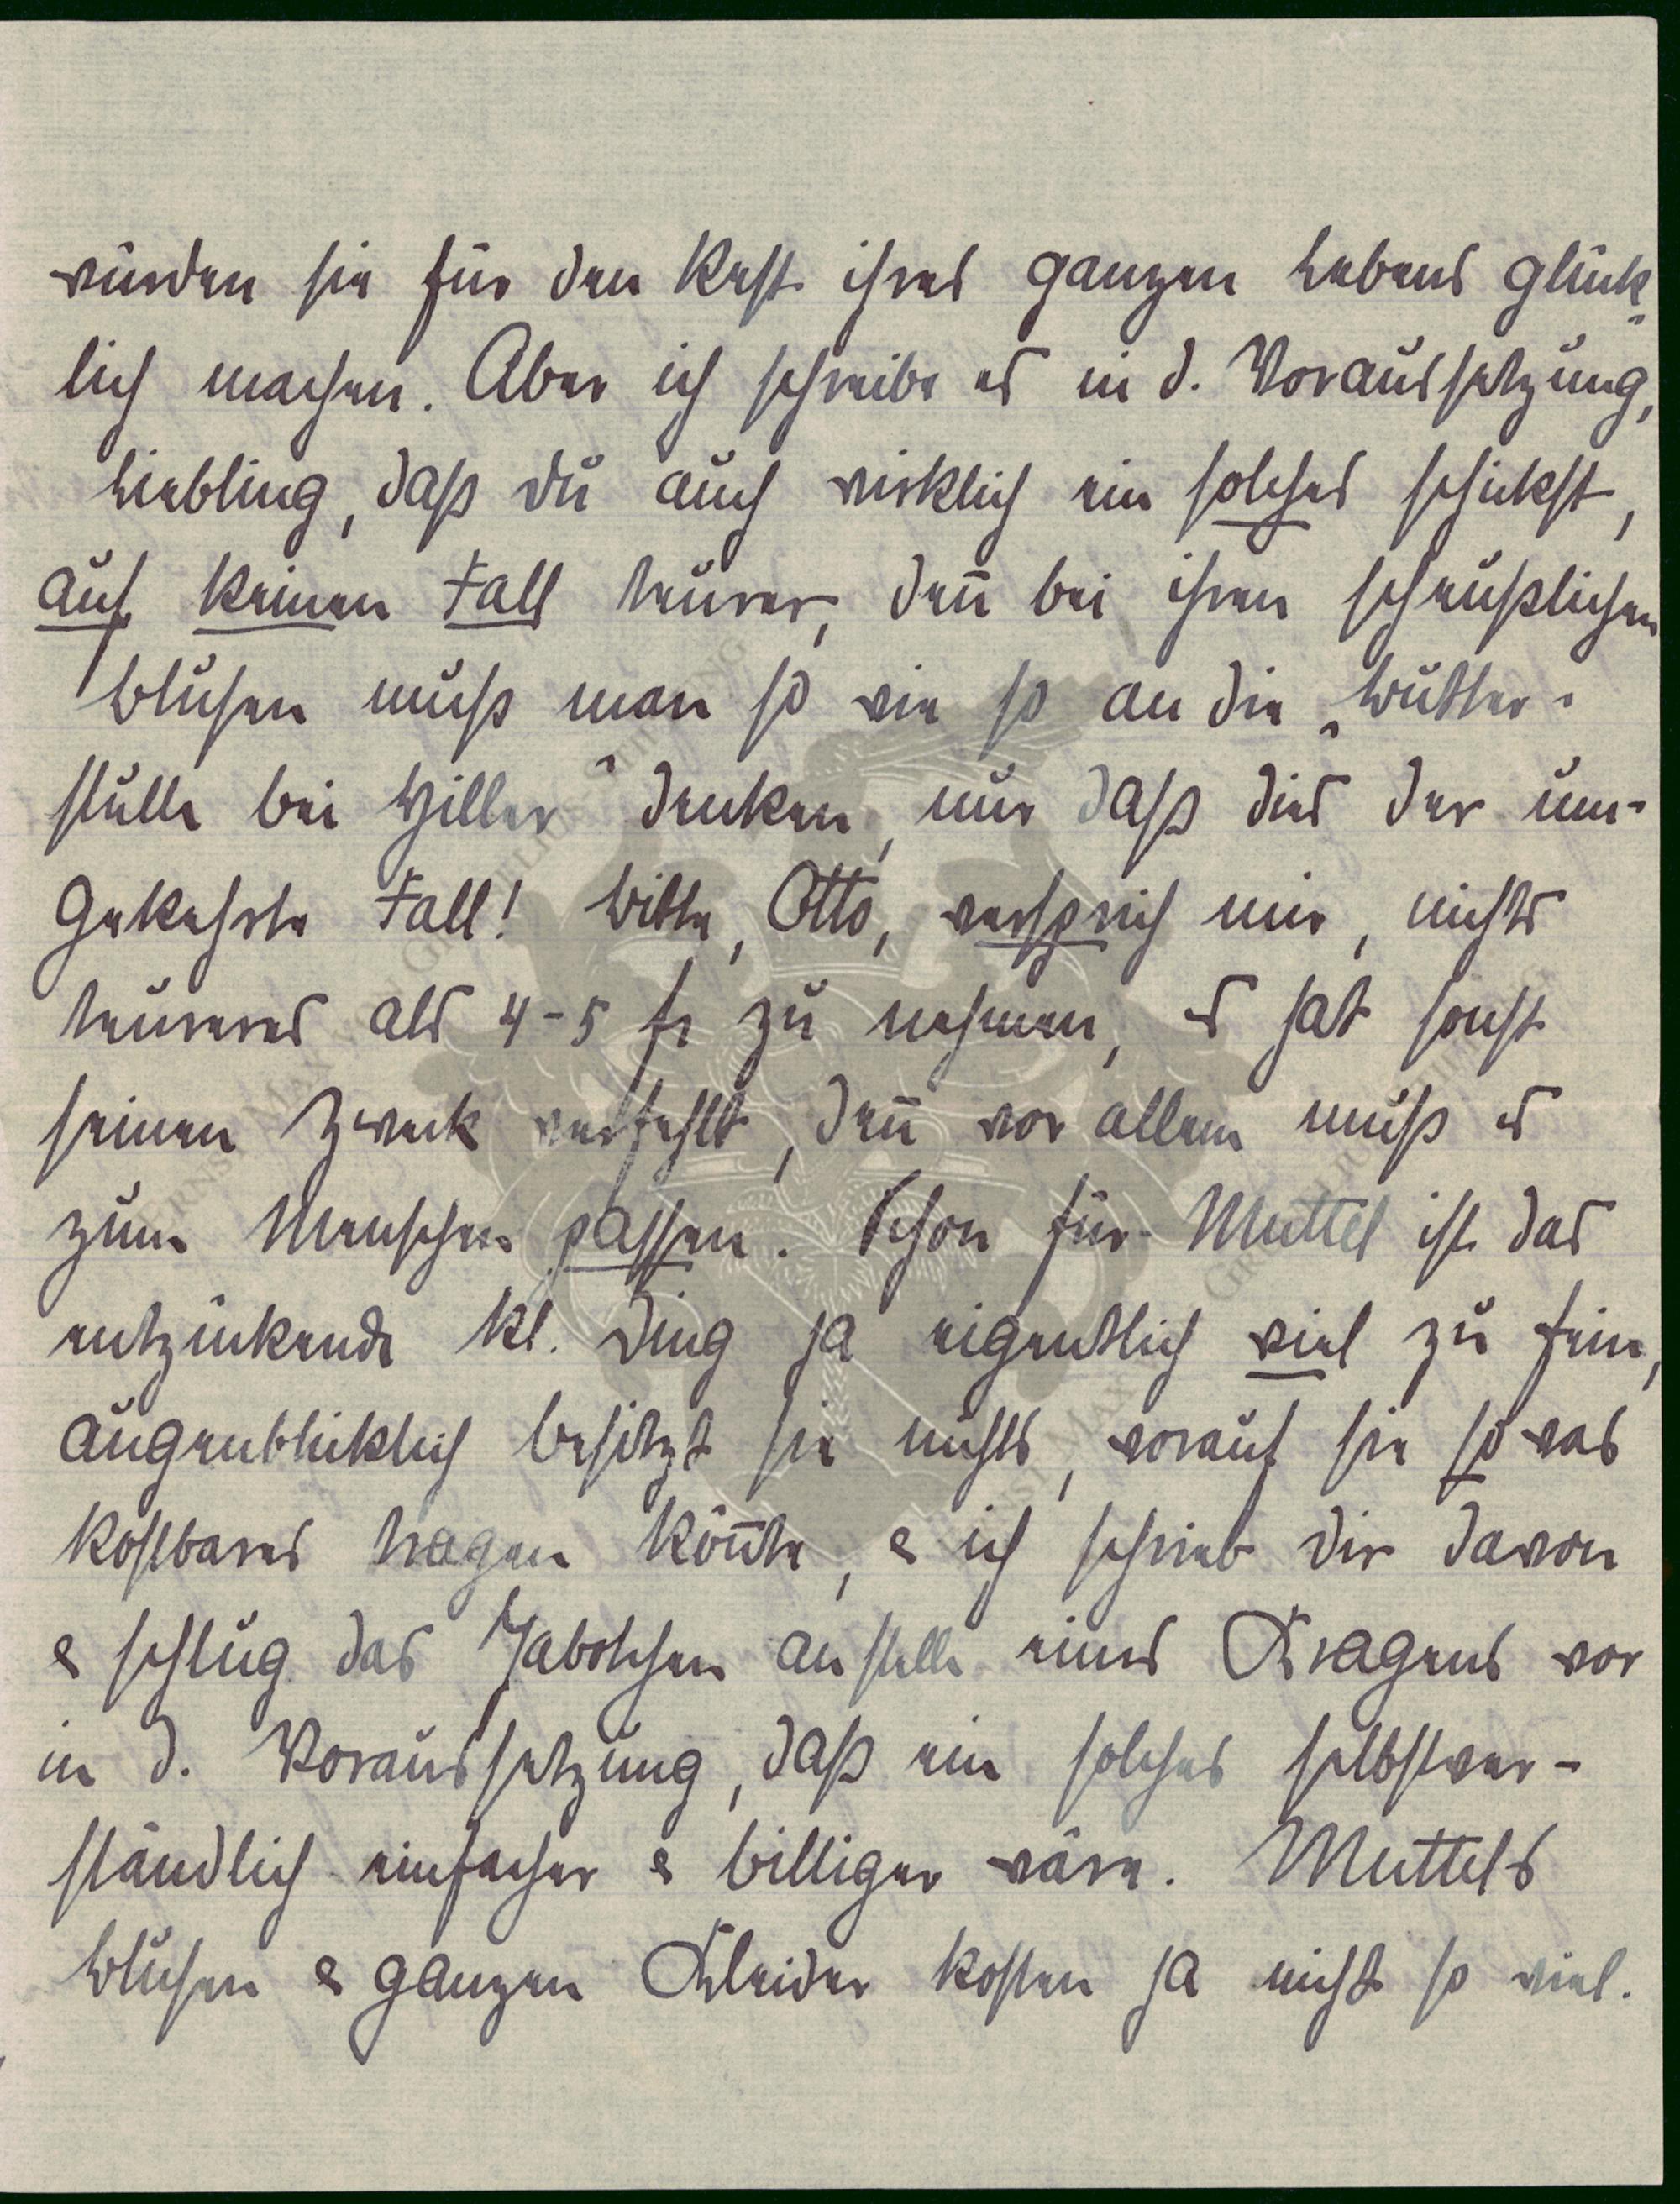 würden sie für den Rest ihres ganzen Lebens glück-
lich machen. Aber ich schreibe es in d. Voraussetzung,
Liebling, daß du auch wirklich ein solches schickst,
auf keinen Fall teurer, den̄ bei ihren scheußlichen
Blusen muß man so wie so an die „Butter-
stulle bei Hiller" denken, nur daß dies der um-
gekehrte Fall! Bitte, Otto, versprich mir, nichts
teureres als 4-5 fr zu nehmen, es hat sonst
seinen Zweck verfehlt, den̄ vor allem muß es
zum Menschen passen. Schon für Muttel ist das
entzückende kl. Ding ja eigentlich viel zu fein,
augenblicklich besitzt sie nichts, worauf sie so was
kostbares tragen kön̄te, & ich schrieb dir davon
& schlug das Jabotchen anstelle eines Kragens vor
in d. Voraussetzung, daß ein solches selbstver-
ständlich einfacher & billiger wäre. Muttels
Blusen & ganzen Kleider kosten ja nicht so viel.
GERNSTMAX